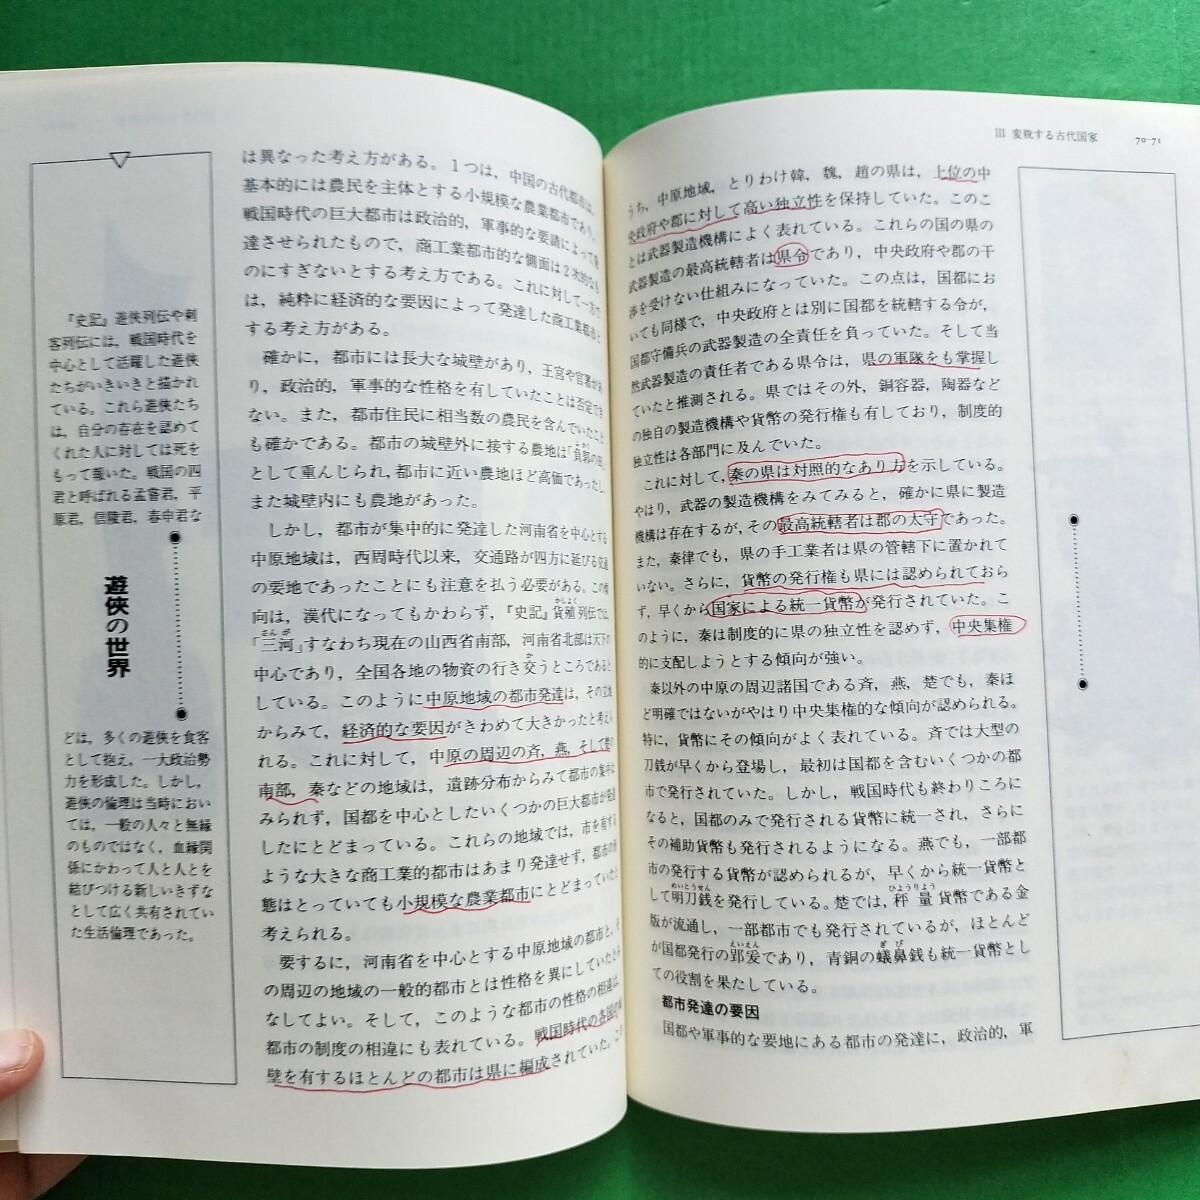 『史記』遊俠列伝や刺
客列伝には，戦国時代を
中心として活躍した遊俠
たちがいきいきと描かれ
ている。これら遊俠たち
は，自分の存在を認めて
くれた人に対しては死を
もって報いた。戦国の四
君と呼ばれる孟嘗君，平
原君，信陵君，春申君な
遊俠の世界
どは，多くの遊俠を食客
として抱え，一大政治勢
力を形成した。しかし，
遊俠の倫理は当時におい
ては，一般の人々と無縁
のものではなく，血縁関
係にかわって人と人とを
結びつける新しいきずな
として広く共有されてい
た生活倫理であった。
は異なった考え方がある。1つは，中国の古代都市は，
基本的には農民を主体とする小規模な農業都市であり，
戦国時代の巨大都市は政治的，軍事的な要請によって発
達させられたもので，商工業都市的な側面は2次的なも
のにすぎないとする考え方である。これに対して一方で
は，純粋に経済的な要因によって発達した商工業都市と
する考え方がある。
確かに，都市には長大な城壁があり，王宮や官署があ
り，政治的，軍事的な性格を有していたことは否定でき
ない。また，都市住民に相当数の農民を含んでいたこと
も確かである。都市の城壁外に接する農地は「負郭の田」
として重んじられ，都市に近い農地ほど高価であったし，
また城壁内にも農地があった。
しかし，都市が集中的に発達した河南省を中心とする
中原地域は，西周時代以来，交通路が四方に延びる交通
の要地であったことにも注意を払う必要がある。この傾
向は，漢代になってもかわらず，『史記』貨殖列伝では，
かしょく
「三河」すなわち現在の山西省南部，河南省北部は天下の
さんが
中心であり，全国各地の物資の行き交うところであると
している。このように中原地域の都市発達は，その立地
からみて，経済的な要因がきわめて大きかったと考えら
れる。これに対して，中原の周辺の斉，燕，そして楚の
南部，秦などの地域は，遺跡分布からみて都市の集中は
みられず，国都を中心としたいくつかの巨大都市が発達
したにとどまっている。これらの地域では，市を有する
ような大きな商工業的都市はあまり発達せず，都市の形
態はとっていても小規模な農業都市にとどまっていたと
考えられる。
要するに，河南省を中心とする中原地域の都市と，そ
の周辺の地域の一般的都市とは性格を異にしていたとみ
なしてよい。そして，このような都市の性格の相違は，
都市の制度の相違にも表れている。戦国時代の各国の城
壁を有するほとんどの都市は県に編成されていた。この
III 変貌する古代国家 70-71
うち，中原地域，とりわけ韓，魏，趙の県は，上位の中
央政府や郡に対して高い独立性を保持していた。このこ
とは武器製造機構によく表れている。これらの国の県の
武器製造の最高統轄者は県令であり，中央政府や郡の干
渉を受けない仕組みになっていた。この点は，国都にお
いても同様で，中央政府とは別に国都を統轄する令が，
国都守備兵の武器製造の全責任を負っていた。そして当
然武器製造の責任者である県令は，県の軍隊をも掌握し
ていたと推測される。県ではその外，銅容器，陶器など
の独自の製造機構や貨幣の発行権も有しており，制度的
独立性は各部門に及んでいた。
これに対して，秦の県は対照的なあり方を示している。
やはり，武器の製造機構をみてみると，確かに県に製造
機構は存在するが，その最高統轄者は郡の太守であった。
また，秦律でも，県の手工業者は県の管轄下に置かれて
いない。さらに，貨幣の発行権も県には認められておら
ず，早くから国家による統一貨幣が発行されていた。こ
のように，秦は制度的に県の独立性を認めず，中央集権
的に支配しようとする傾向が強い。
秦以外の中原の周辺諸国である斉，燕，楚でも，秦ほ
ど明確ではないがやはり中央集権的な傾向が認められる。
特に，貨幣にその傾向がよく表れている。斉では大型の
刀銭が早くから登場し，最初は国都を含むいくつかの都
市で発行されていた。しかし，戦国時代も終わりころに
なると，国都のみで発行される貨幣に統一され，さらに
その補助貨幣も発行されるようになる。燕でも，一部都
市の発行する貨幣が認められるが，早くから統一貨幣と
して明刀銭を発行している。楚では，秤量貨幣である金
めいとうせん ひょうりょう
版が流通し，一部都市でも発行されているが，ほとんど
が国都発行の郢爰であり，青銅の蟻鼻銭も統一貨幣とし
えいえん ぎび
ての役割を果たしている。
都市発達の要因
国都や軍事的な要地にある都市の発達に，政治的，軍